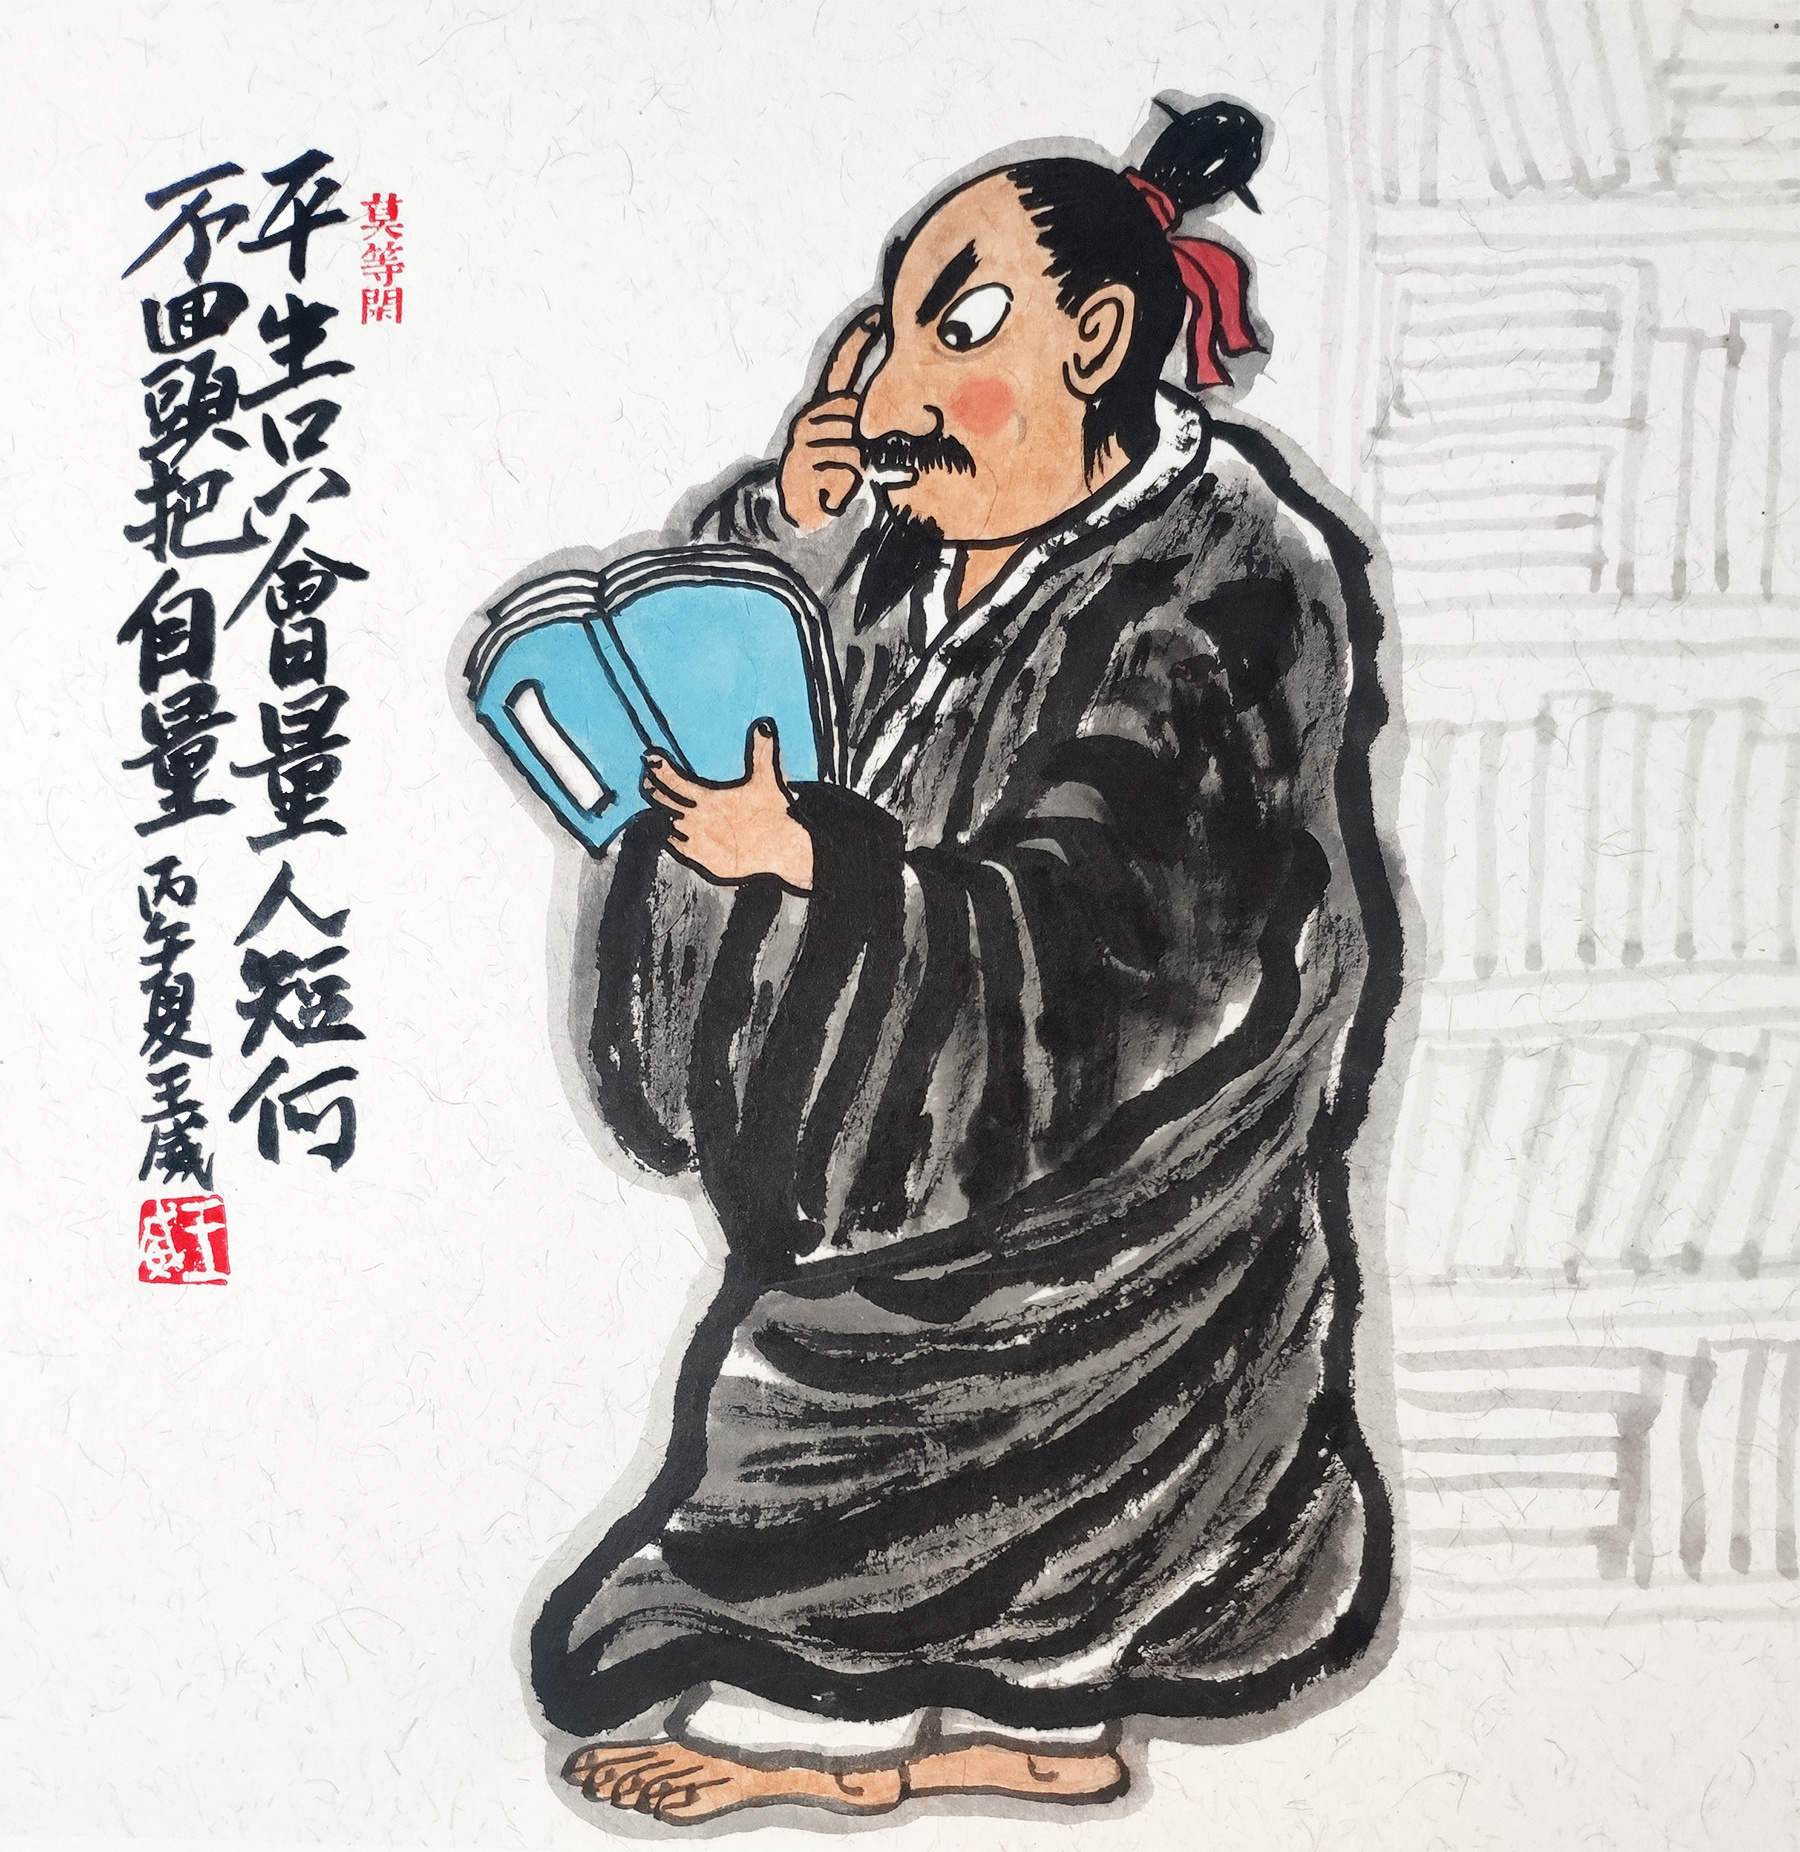 莫等閑
平生只會量人短何
不回頭把自量
丙午夏王威
王威